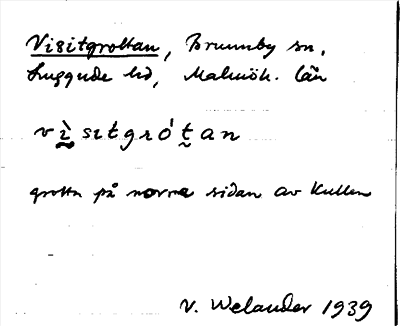 Visitgrottan, Brunnby sn,
Luggude hd, Malmöh. län
vḭ̀sıtgrót̰an
grotta på norra sidan av Kullen
V. Welander 1939